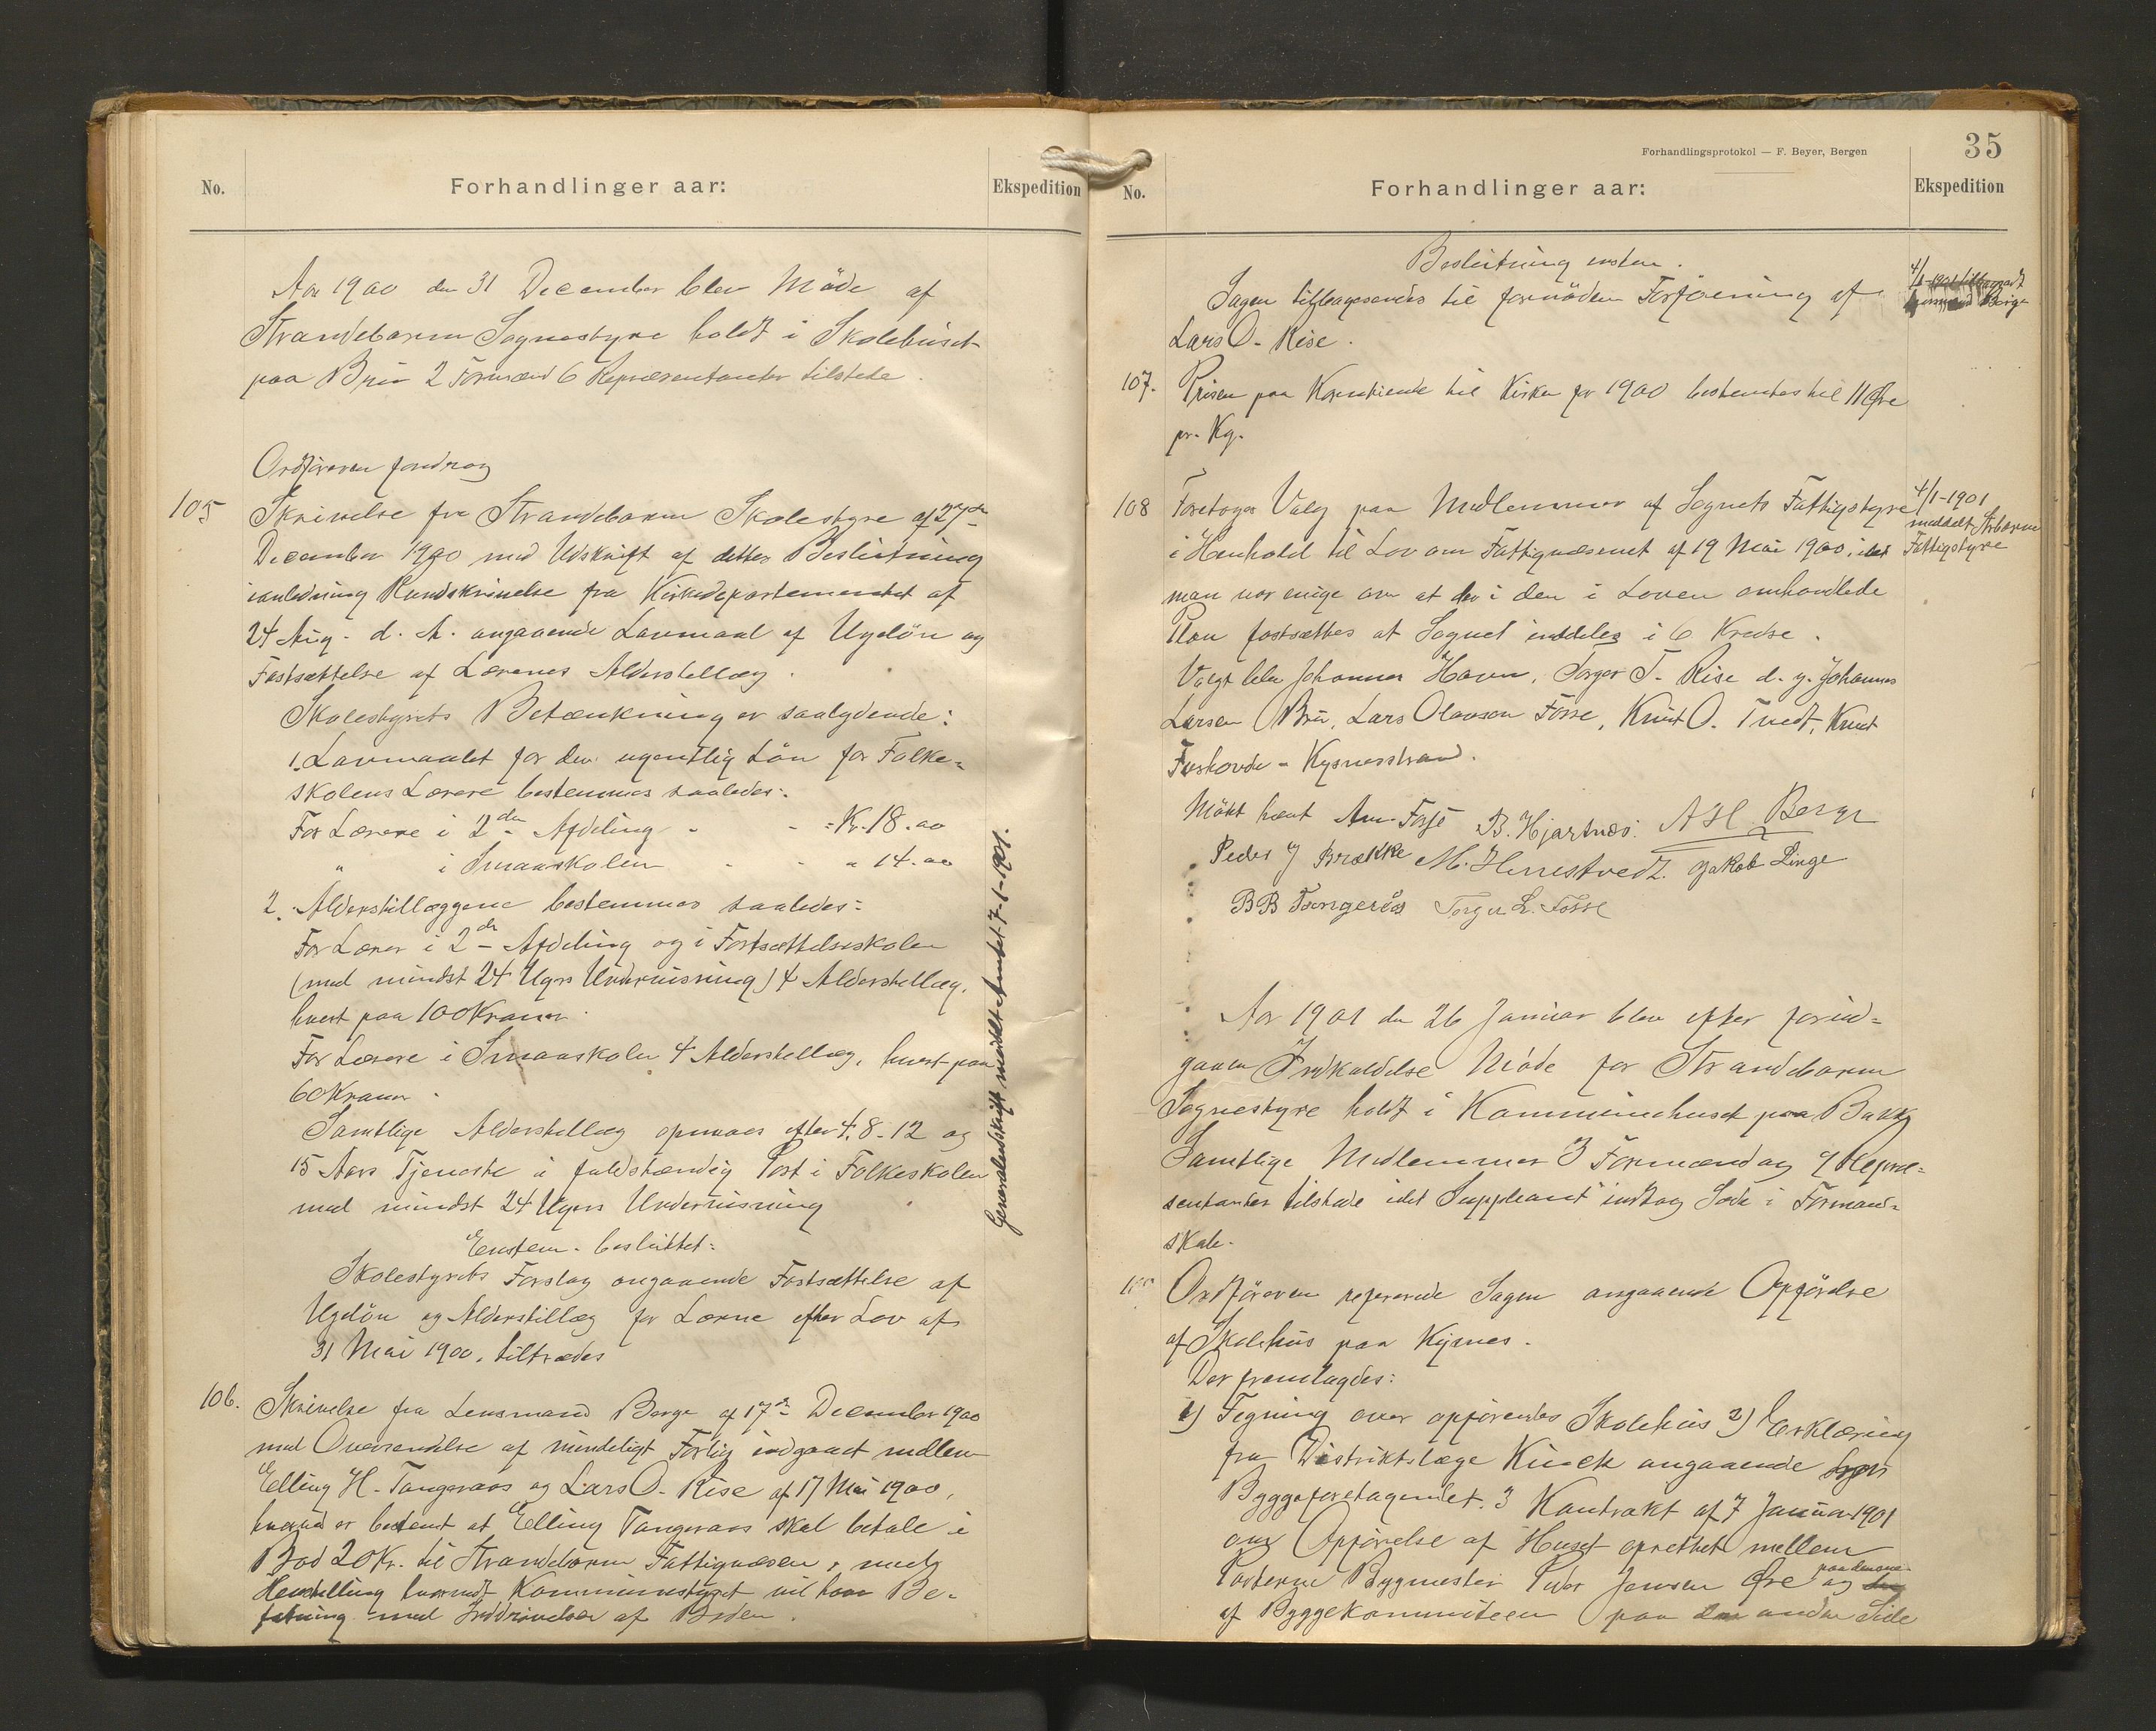 No.
Forhandlinger aar:
Ekspedition
Aar 1900 den 31 December blev Møde af
Strandebarm Sognestyre holdt i Skolehuset
paa Bru 2 Formænd 6 Repræsentanter tilstede.
Ordføreren foredrog
105 Skrivelse fra Strandebarm Skolestyre af 27de
December 1900 med Udskrift af dettes Beslutning
ianledning Rundskrivelse fra Kirkedepartementet af
24 Aug. d. A. angaaende Lavmaal af Ugeløn og
Fastsættelse af Lærenes Alderstillæg.
Skolestyrets Betænkning er saalydende:
1. Lavmaalet for den ugentlig Løn for Folke-
skolens Lærere bestemmes saaledes:
For Lærere i 2den Afdeling - - Kr. 18.00
" i Smaaskolen - - " 14.00
2. Alderstillæggene bestemmes saaledes:
For Lærer i 2den Afdeling og i Fortsættelsesskolen
(med mindst 24 Ugers Undervisning) 4 Alderstillæg,
hvert paa 100 Kroner.
For Lærere i Smaaskolen 4 Alderstillæg, hvert paa
60 Kroner.
Samtlige Alderstillæg opnaaes efter 4, 8, 12 og
15 Aars Tjeneste i fuldstændig Post i Folkeskolen
med mindst 24 Ugers Undervisning
Enstem. besluttet:
Skolestyrets Forslag angaaende Fastsættelse af
Ugeløn og Alderstillæg for Lærne efter Lov af
31 Mai 1900, tiltrædes
Genpartudskrift meddelt Amtet 7-1-1901.
106. Skrivelse fra Lensmand Berge af 17de December 1900
med Oversendelse af mindeligt Forlig indgaaet mellem
Elling H. Tangeraas og Lars O. Rise af 17 Mai 1900,
hvorved er bestemt at Elling Tangeraas skal betale i
Bod 20 Kr. til Strandebarm Fattigvæsen, med
Henstilling hvorvidt Kommunestyret vil have Be-
fatning med Inddrivelsen af Boden.
Forhandlingsprotokol — F. Beyer, Bergen
35
No.
Forhandlinger aar:
Ekspedition
Beslutning enstem.
Sagen tilbagesendes til fornøden Forføining af
Lars O. Rise.
4/1-1901 tilbagesendt
Lensmand Berge
107. Prisen paa Korntiende til Kirken for 1900 bestemtes til 11 Øre
pr. Kg.
108 Foretoges Valg paa Medlemmer af Sognets Fattigstyre
i Henhold til Lov om Fattigvæsenet af 19 Mai 1900, idet
man var enige om at der i den i Loven omhandlede
Plan fastsættes at Sognet inddeles i 6 Kredse.
Valgt blev Johannes Havn, Torger T. Rise d. y. Johannes
Larsen Bru, Lars Olavson Fosse, Knut O. Tvedt, Knut
Foshovde - Kysnesstrand.
4/1-1901
meddelt Strbarm
Fattigstyre
Møtet hævt Am. Fosse B. Hjartnes. A H Berge
Peder J Brække M. Hennestvedt. Jakob Linge
B B Tangerås Torger L. Fosse
Aar 1901 den 26 Januar blev efter forud-
gaaen Indkaldelse Møde for Strandebarm
Sognestyre holdt i Kommunehuset paa Bakke
Samtlige Medlemmer 3 Formænd og 9 Repræ-
sentanter tilstede idet Suppleant indtog Sæde i Formand-
skab.
Ordføreren refererede Sagen angaaende Opførelse
af Skolehus paa Kysnes.
Der fremlagdes:
1) Tegning over opførendes Skolehus 2) Erklæring
fra Distriktslæge Kinck angaaende
Byggeforetagendet. 3 Kontrakt af 7 Januar 1901
om Opførelse af Huset oprettet mellem
Parterne Bygmester Peder Jensen Øre paa den ene og
af Byggekommiteen paa den anden Side